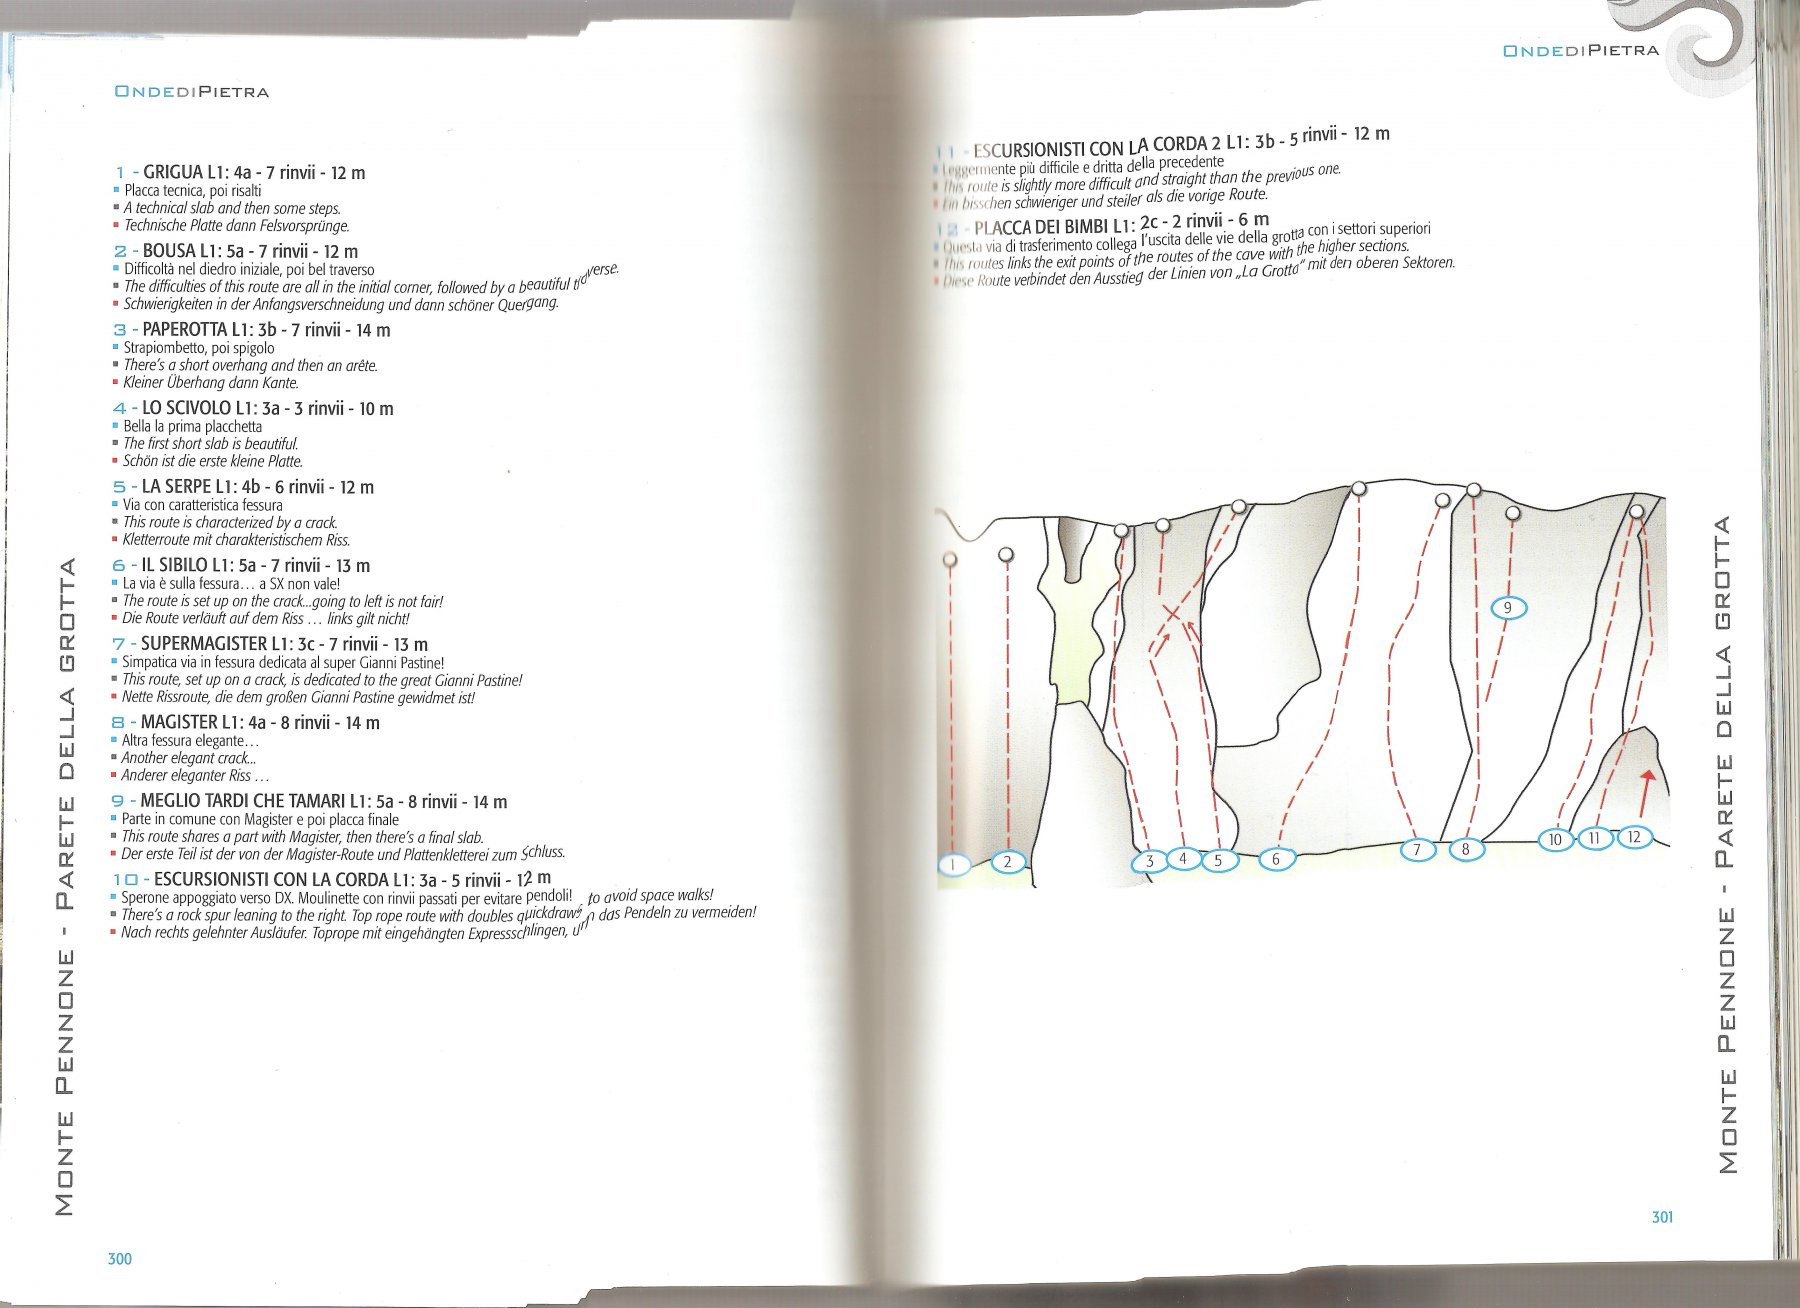 ONDEDIPIETRA
1 - GRIGUA L1: 4a - 7 rinvii - 12 m
Placca tecnica, poi risalti
A technical slab and then some steps.
Technische Platte dann Felsvorsprünge.
2 - BOUSA L1: 5a - 7 rinvii - 12 m
Difficoltà nel diedro iniziale, poi bel traverso
The difficulties of this route are all in the initial corner, followed by a beautiful tidverse.
Schwierigkeiten in der Anfangsverschneidung und dann schöner Quergang.
3 - PAPEROTTA L1: 3b - 7 rinvii - 14 m
Strapiombetto, poi spigolo
There's a short overhang and then an arête.
Kleiner Überhang dann Kante.
4 - LO SCIVOLO L1: 3a - 3 rinvii - 10 m
Bella la prima placchetta
The first short slab is beautiful.
Schön ist die erste kleine Platte.
5 - LA SERPE L1: 4b - 6 rinvii - 12 m
Via con caratteristica fessura
This route is characterized by a crack.
Kletterroute mit charakteristischem Riss.
6 - IL SIBILO L1: 5a - 7 rinvii - 13 m
La via è sulla fessura... a SX non vale!
The route is set up on the crack...going to left is not fair!
Die Route verläuft auf dem Riss ... links gilt nicht!
7 - SUPERMAGISTER L1: 3c - 7 rinvii - 13 m
Simpatica via in fessura dedicata al super Gianni Pastine!
This route, set up on a crack, is dedicated to the great Gianni Pastine!
Nette Rissroute, die dem großen Gianni Pastine gewidmet ist!
8 - MAGISTER L1: 4a - 8 rinvii - 14 m
Altra fessura elegante...
Another elegant crack...
Anderer eleganter Riss ...
9 - MEGLIO TARDI CHE TAMARI L1: 5a - 8 rinvii - 14 m
Parte in comune con Magister e poi placca finale
This route shares a part with Magister, then there's a final slab.
Der erste Teil ist der von der Magister-Route und Plattenkletterei zum Schluss.
10 - ESCURSIONISTI CON LA CORDA L1: 3a - 5 rinvii - 12 m
Sperone appoggiato verso DX. Moulinette con rinvii passati per evitare pendoli!
There's a rock spur leaning to the right. Top rope route with doubles quickdraws to avoid space walks!
Nach rechts gelehnter Ausläufer. Toprope mit eingehängten Expressschlingen, um das Pendeln zu vermeiden!
MONTE PENNONE - PARETE DELLA GROTTA
300
ONDEDIPIETRA
11 - ESCURSIONISTI CON LA CORDA 2 L1: 3b - 5 rinvii - 12 m
Leggermente più difficile e dritta della precedente
This route is slightly more difficult and straight than the previous one.
Ein bisschen schwieriger und steiler als die vorige Route.
12 - PLACCA DEI BIMBI L1: 2c - 2 rinvii - 6 m
Questa via di trasferimento collega l'uscita delle vie della grotta con i settori superiori
This routes links the exit points of the routes of the cave with the higher sections.
Diese Route verbindet den Ausstieg der Linien von „La Grotta" mit den oberen Sektoren.
9
1 2 3 4 5 6 7 8 10 11 12
MONTE PENNONE - PARETE DELLA GROTTA
301